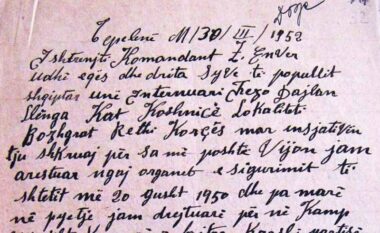 Doge
32
Tepelenë M/30/III/1952
I shtrenjti Komandant Z. Enver
udhë egës dhe drita Syve të popullit
shqiptar unë Internuari Ihezo Dajlan
Slënga Kat Koshnicë Lokaliteti
Bozhgrat Rethi Korçës mar insjativën
tju shkruaj për sa më poshtë Vijon jam
arestuar ngaj organet e sigurimit të
shtetit më 20 gusht 1950 dhe pa marë
në pyetje jam drejtuar për në Kamp